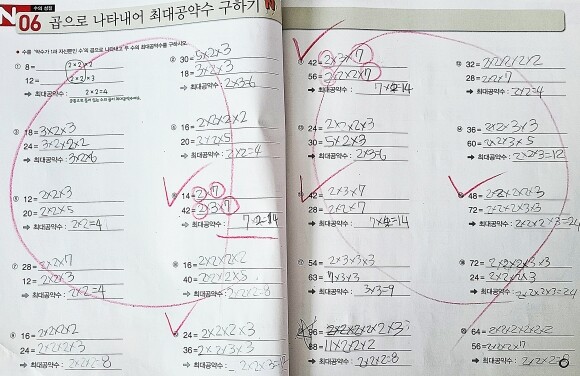 N 수의 성질
06 곱으로 나타내어 최대공약수 구하기 N
● 수를 '약수가 1과 자신뿐인 수'의 곱으로 나타내고 두 수의 최대공약수를 구하시오.
① 8= 2×2×2
12= 2×2×3
➡ 최대공약수 : 2×2=4
③ 18=3×2×3
24=3×2×2×2
➡ 최대공약수 : 3×2=6
⑤ 12=2×2×3
20=2×2×5
➡ 최대공약수 : 2×2=4
⑦ 28=2×2×7
12=2×2×3
➡ 최대공약수 : 2×2=4
16=2×2×2×2
24=2×2×2×3
➡ 최대공약수 : 2×2×2=8
② 30=5×2×3
18=3×2×3
➡ 최대공약수 : 2×3=6
16=2×2×2×2
20=2×2×5
➡ 최대공약수 : 2×2=4
14=2×7
42=2×3×7
➡ 최대공약수 : 7×2=14
16=2×2×2×2
40=2×2×2×5
➡ 최대공약수 : 2×2×2=8
24=2×2×2×3
36=2×2×3×3
➡ 최대공약수 : 2×2×3=12
42=2×3×7
56=2×2×2×7
➡ 최대공약수 : 7×2=14
24=2×2×2×3
30=5×2×3
➡ 최대공약수 : 2×3=6
42=2×3×7
28=2×2×7
➡ 최대공약수 : 7×2=14
54=
63=7×3×3
➡ 최대공약수 : 3×3=9
96=2×2×2×2×2×3
88=11×2×2×2
➡ 최대공약수 : 2×2×2=8
32=2×2×2×2×2
28=2×2×7
➡ 최대공약수 : 2×2=4
36=2×2×3×3
60=2×2×3×5
➡ 최대공약수 : 2×2×3=12
48=2×2×2×2×3
72=2×2×2×3×3
➡ 최대공약수 : 2×2×2×3=24
72=2×2×2×3×3
24=2×2×2×3
➡ 최대공약수 : 2×2×2×3=24
64=2×2×2×2×2×2
56=2×2×2×7
➡ 최대공약수 : 2×2×2=8